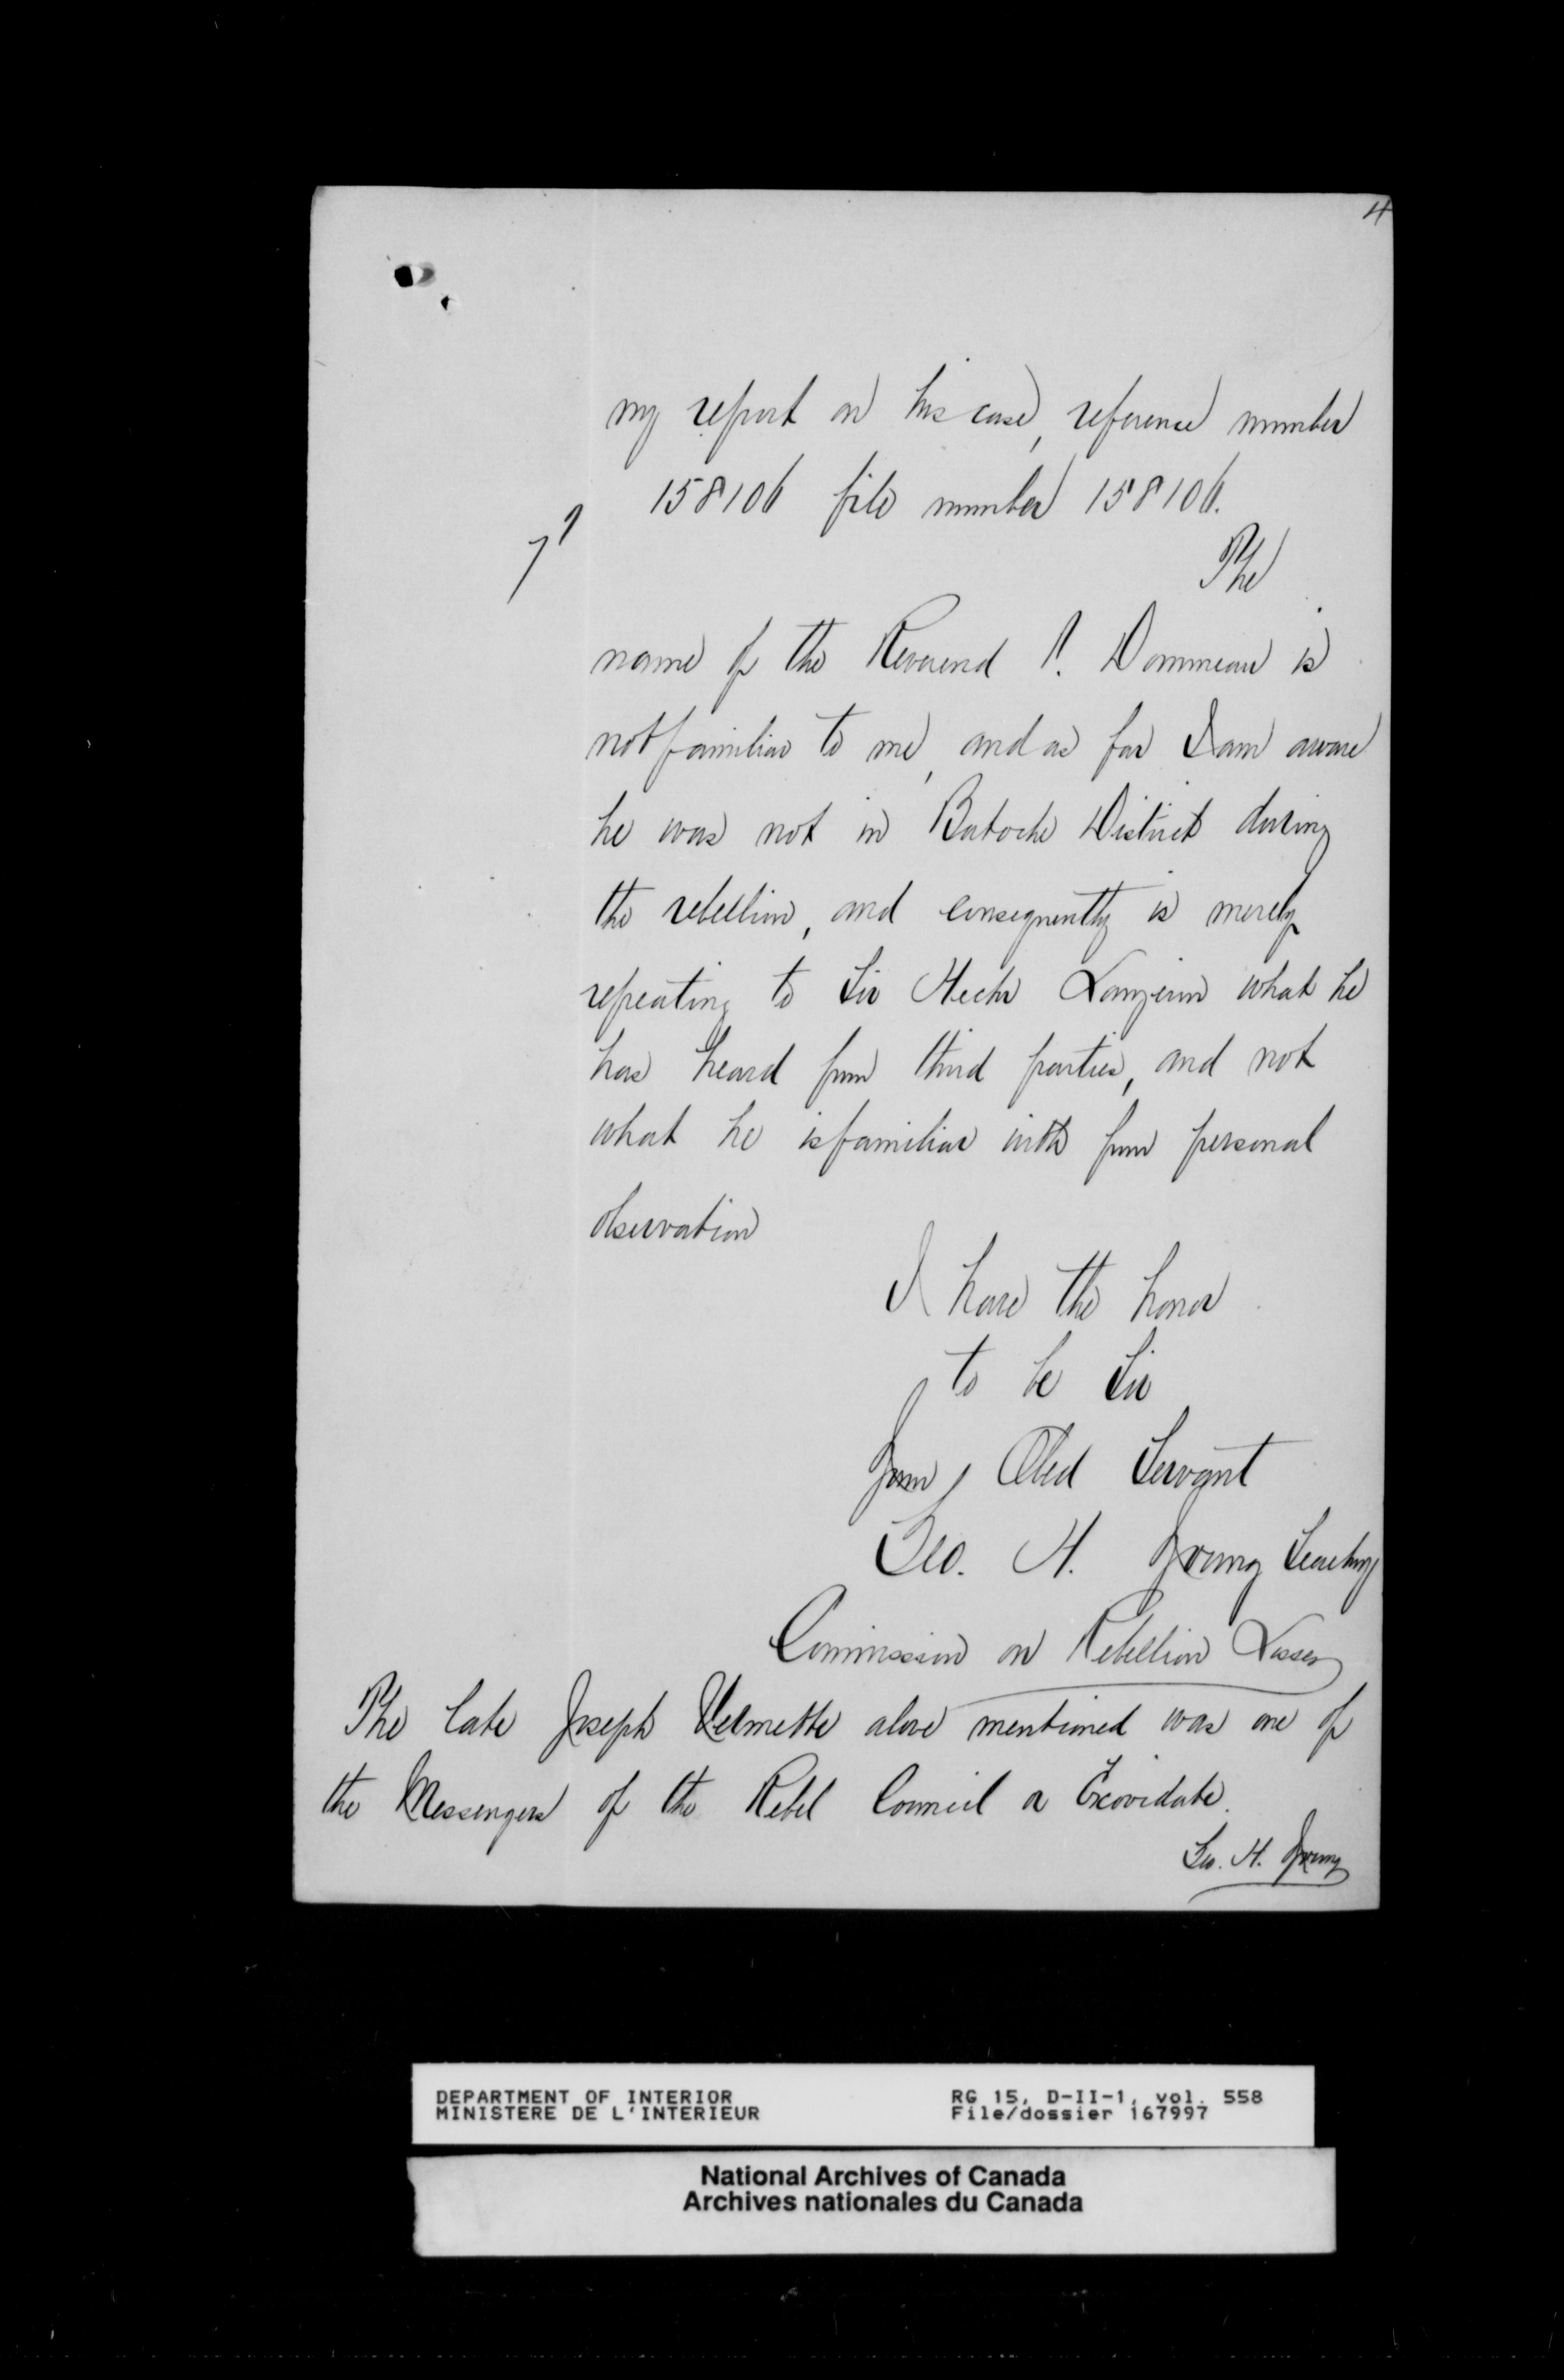 4
my report on his case, reference number
158106 file number 158106.
The
name of the Reverend P. Dommeau is
not familiar to me, and as far I am aware
he was not in Batoche District during
the rebellion, and consequently is merely
repeating to Sir Hector Langevin what he
has heard from third parties, and not
what he is familiar with from personal
observation
I have the honor
to be Sir
Your Obed Servant
Geo. H. Young Secretary
Commission on Rebellion Losses
The late Joseph Vermette above mentioned was one of
the Messengers of the Rebel Council or Exovidate.
Geo. H. Young
DEPARTMENT OF INTERIOR
MINISTERE DE L'INTERIEUR
RG 15, D-II-1, vol. 558
File/dossier 167997
National Archives of Canada
Archives nationales du Canada